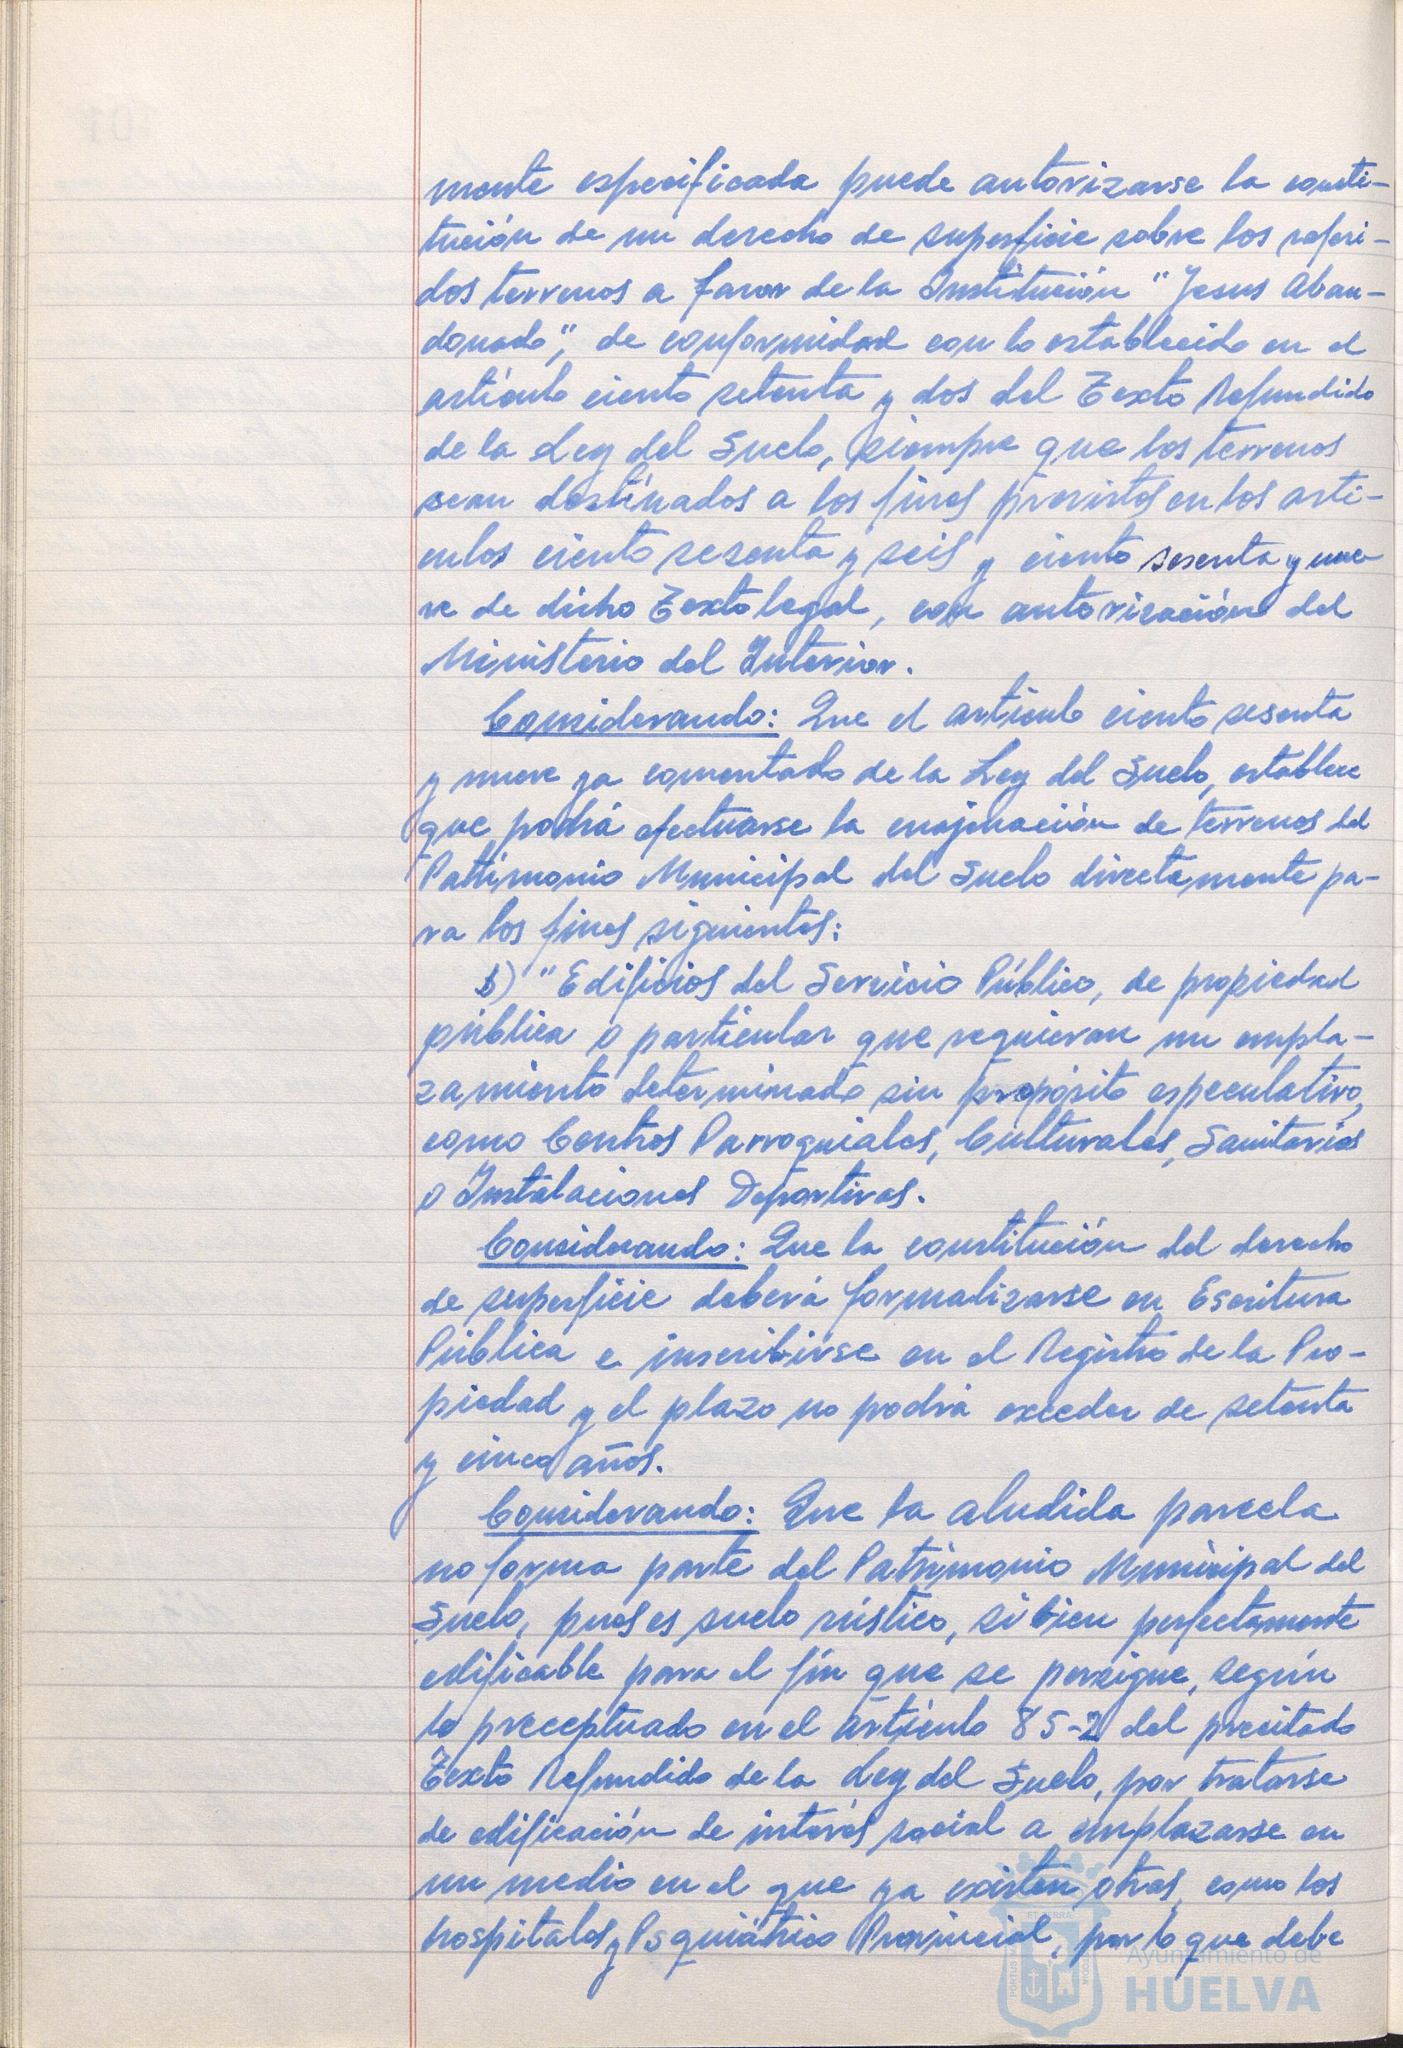 mente especificada puede autorizarse la consti-
tución de un derecho de superficie sobre los referi-
dos terrenos a favor de la Institución "Jesus Aban-
donado", de conformidad con lo establecido en el
artículo ciento setenta y dos del Texto Refundido
de la Ley del Suelo, siempre que los terrenos
sean destinados a los fines previstos en los artí-
culos ciento sesenta y seis y ciento sesenta y nue-
ve de dicho Texto legal, con autorización del
Ministerio del Interior.
Considerando: Que el artículo ciento sesenta
y nueve ya comentado de la Ley del Suelo, establece
que podrá efectuarse la enajenación de terrenos del
Patrimonio Municipal del Suelo directamente pa-
ra los fines siguientes:
b) "Edificios del Servicio Público, de propiedad
pública o particular que requieran un empla-
zamiento determinado sin propósito especulativo,
como Centros Parroquiales, Culturales, Sanitarios
o Instalaciones Deportivas.
Considerando: Que la constitución del derecho
de superficie deberá formalizarse en Escritura
Pública e inscribirse en el Registro de la Pro-
piedad y el plazo no podrá exceder de setenta
y cinco años.
Considerando: Que la aludida parcela
no forma parte del Patrimonio Municipal del
Suelo, pues es suelo rústico, si bien perfectamente
edificable para el fin que se persigue, según
lo preceptuado en el artículo 85-2 del precitado
Texto Refundido de la Ley del Suelo, por tratarse
de edificación de interés social a emplazarse en
un medio en el que ya existen otras, como los
hospitales y Psquiátrico Provincial, por lo que debe
Ayuntamiento de
HUELVA